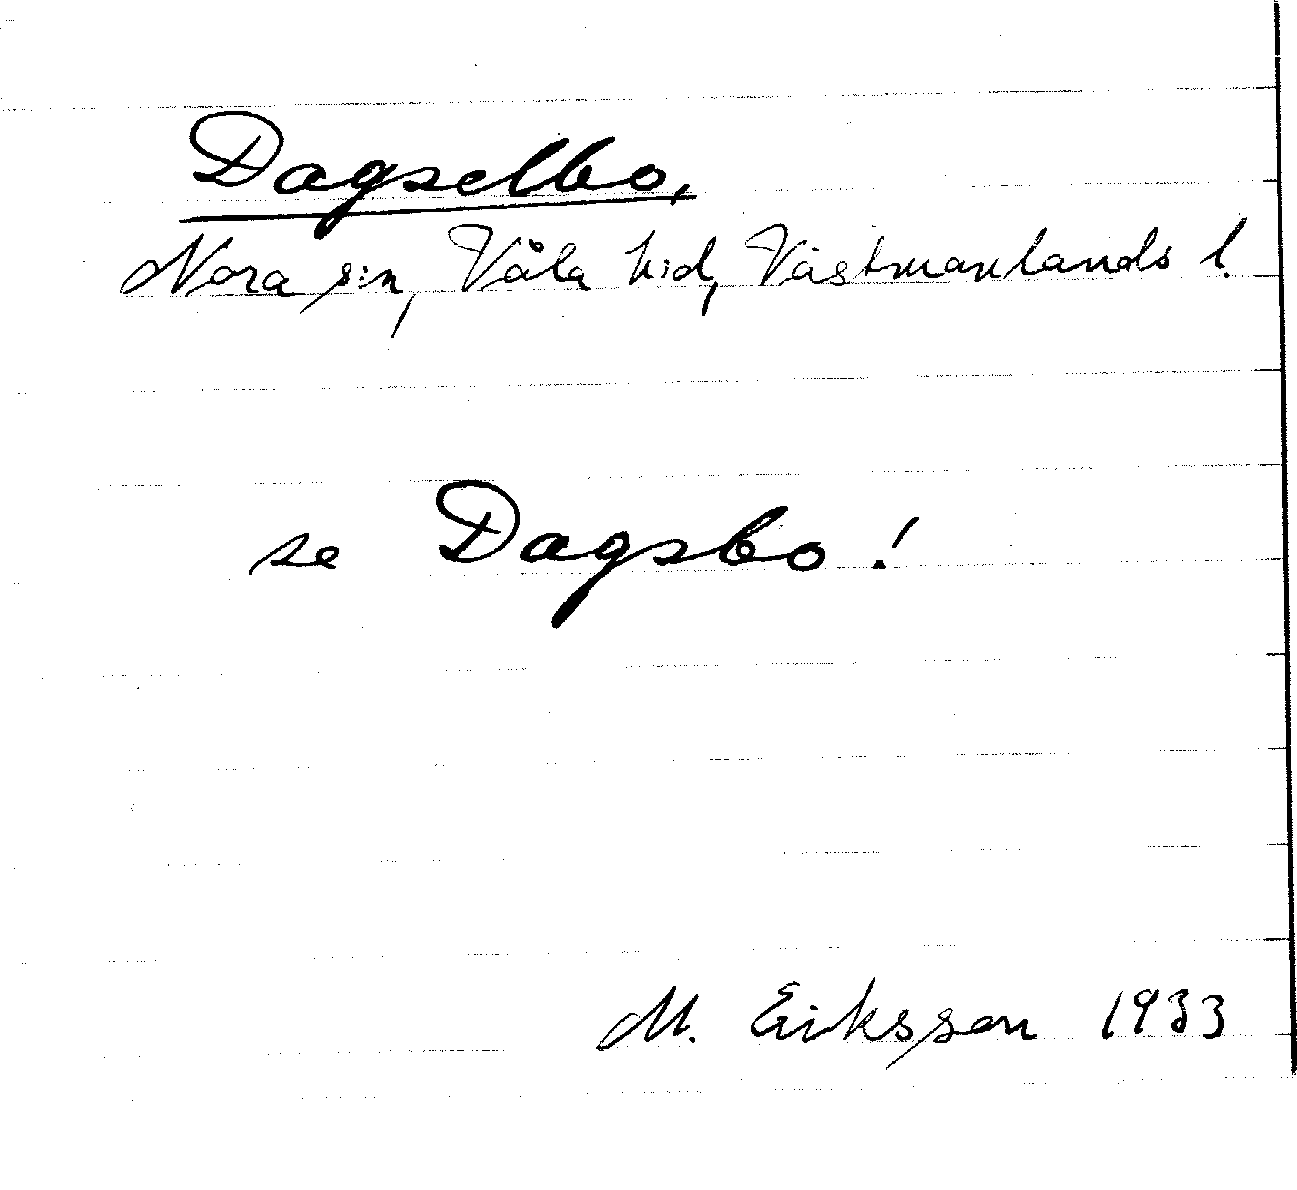 Dagselbo,
Nora s:n, Våla h:d, Västmanlands l.
se Dagsbo!
M. Eriksson 1933